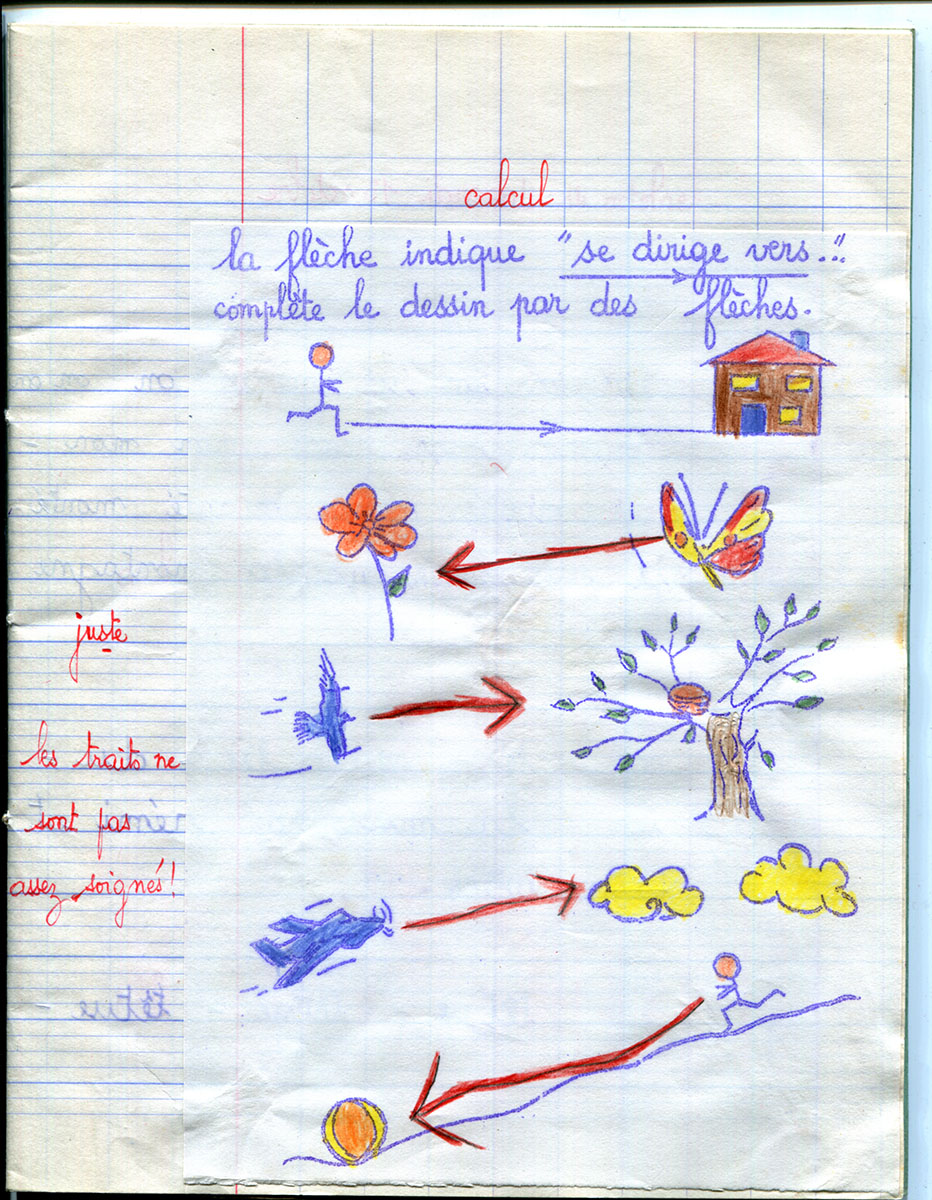 calcul
la flèche indique "se dirige vers..."
complète le dessin par des flèches.
juste
les traits ne
sont pas
assez soignés!